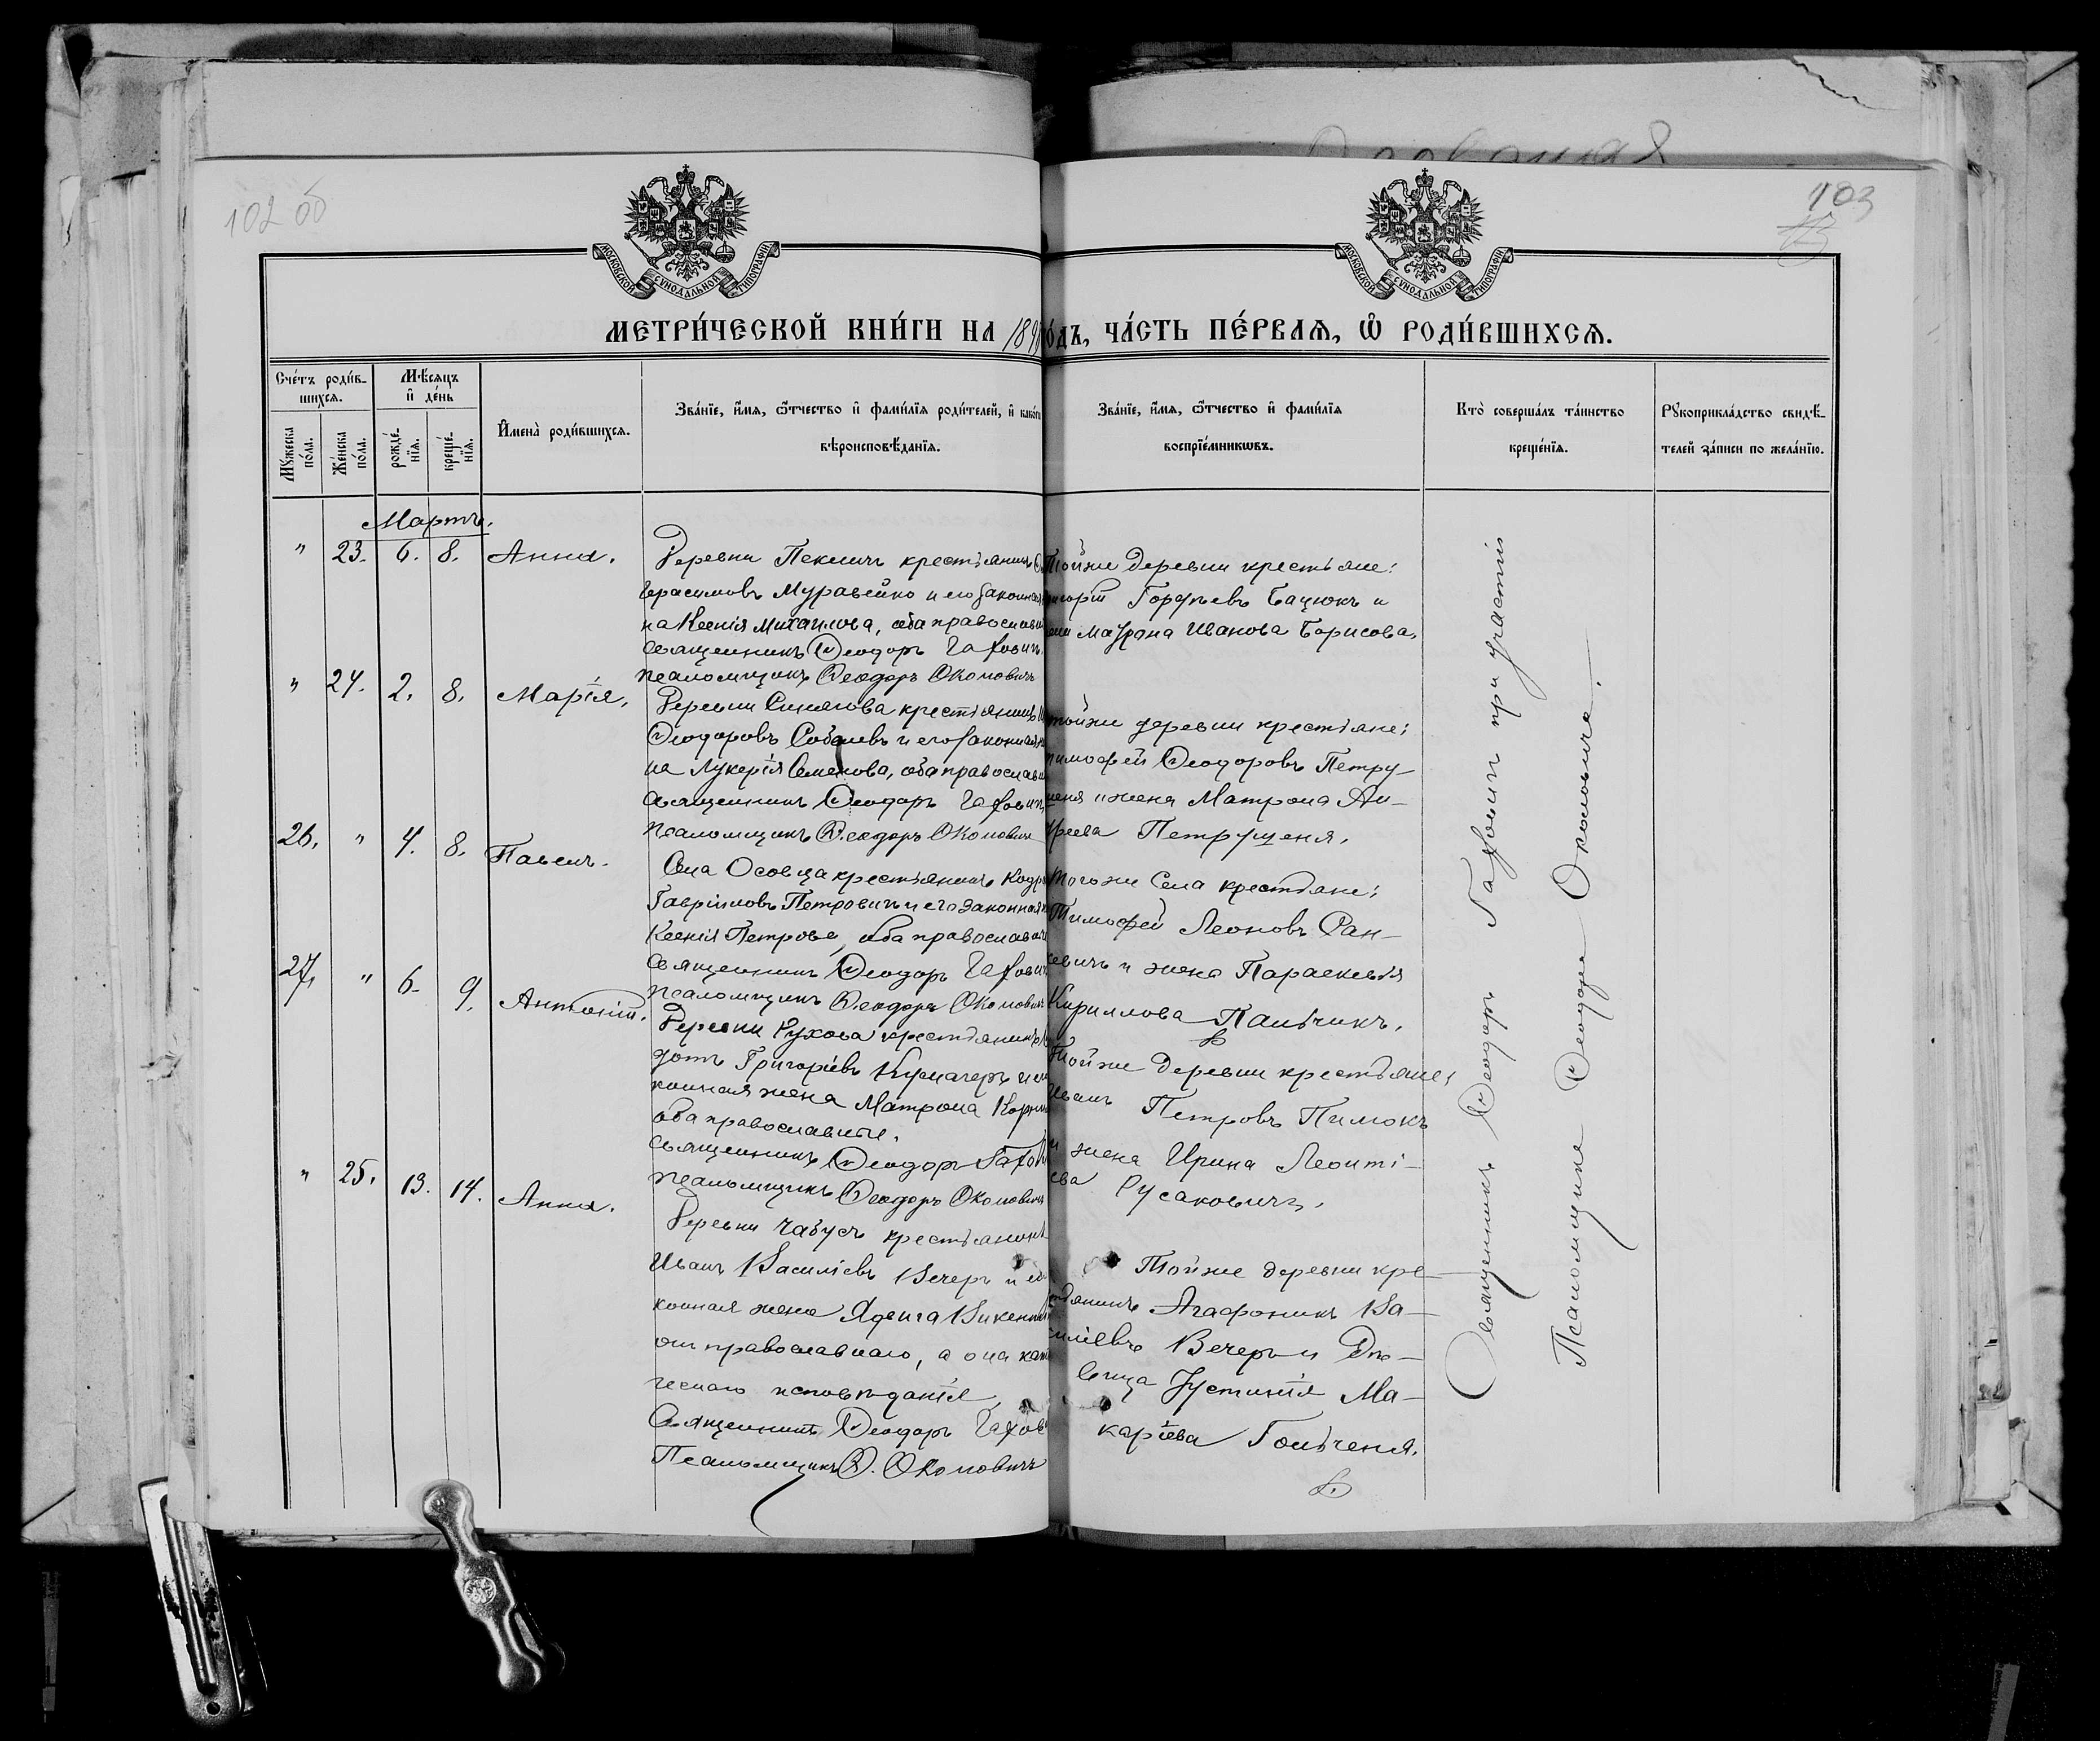 102 об
103
МОСКОВСКОЙ СѴНОДАЛЬНОЙ ТИПОГРАФІИ
МОСКОВСКОЙ СѴНОДАЛЬНОЙ ТИПОГРАФІИ
МЕТРИ́ЧЕСКОЙ КНИ́ГИ НА 189
одъ, ЧА́СТЬ ПЕ́РВАѦ, Ѽ РОДИ́ВШИХСѦ.
Сче́тъ роди́в-
шихсѧ.
Мѣ́сѧцъ
и҆ де́нь
Мꙋ́жеска по́ла.
Же́нска по́ла.
рожде́-
нїѧ.
креще́-
нїѧ.
И҆мена̀ роди́вшихсѧ.
Зва́нїе, и҆́мѧ, ѻ҆́тчество и҆ фамі́лїѧ роди́телей, и҆ како́гѡ
вѣроисповѣ́данїѧ.
Зва́нїе, и҆́мѧ, ѻ҆́тчество и҆ фамі́лїѧ
воспрїе́мникѡвъ.
Кто̀ соверша́лъ та́инство
креще́нїѧ.
Рꙋкоприкла́дство свидѣ́-
телей за́писи по жела́нїю.
Мартъ.
" 23. 6. 8. Анна.
Деревни крестьянинъ
Герасимовъ Муравейко и его законная
на Ксенія Михаилова, оба православн
Священникъ Ѳеодоръ Гахович
псаломщикъ Ѳеодоръ Околовичъ
Тойже деревни крестьяне:
Гордѣевъ Бацюкъ и
Матрона Иванова Борисова.
" 24. 2. 8. Марія.
Деревни Синягова крестьянинъ
Ѳеодоровъ и его законная
на Лукерія Семенова, оба православн
Священникъ Ѳеодоръ Гахович
Псаломщикъ Ѳеодоръ Околович
тойже деревни крестьяне:
Тимофей Ѳеодоровъ Петру-
щеня и жена Матрона Ан-
дреева Петрущеня.
26. " 4. 8. Павелъ.
Села Осовца крестьянинъ
Гавріиловъ Петровичъ и его законная
Ксенія Петрова, оба православн
Священникъ Ѳеодоръ Гахович
псаломщикъ Ѳеодоръ Околович
Тогоже Села крестьяне:
Тимофей Леоновъ
севичъ и жена Параскевія
Кириллова Пальчикъ.
27. " 6. 9. Антоній.
Деревни Рухова крестьянинъ
дотъ Григоріевъ Кусмачеръ и его
конная жена Матрона Корни
оба православные.
Священникъ Ѳеодоръ Гахов
псаломщикъ Ѳеодоръ Околович
Тойже деревни крестьяне:
Иванъ Петровъ Пимокъ
и жена Ирина Леонті-
ева Русаковичъ.
" 25. 13. 14. Анна.
Деревни Чабусъ крестьянинъ
Иванъ Василіевъ Вечеръ и его
конная жена Ядвига Викенті
онъ православнаго, а она кат
ческаго исповѣданія
Священникъ Ѳеодоръ Гахов
Псаломщикъ Ѳ. Околовичъ
Тойже деревни кре-
стьянинъ Агафоникъ Ва-
силіевъ Вечеръ и Дѣ-
вица Іустинія Ма-
каріева Гольченя.
Священникъ Ѳеодоръ Гахович при участіи
Псаломщика Ѳеодора Околовича.